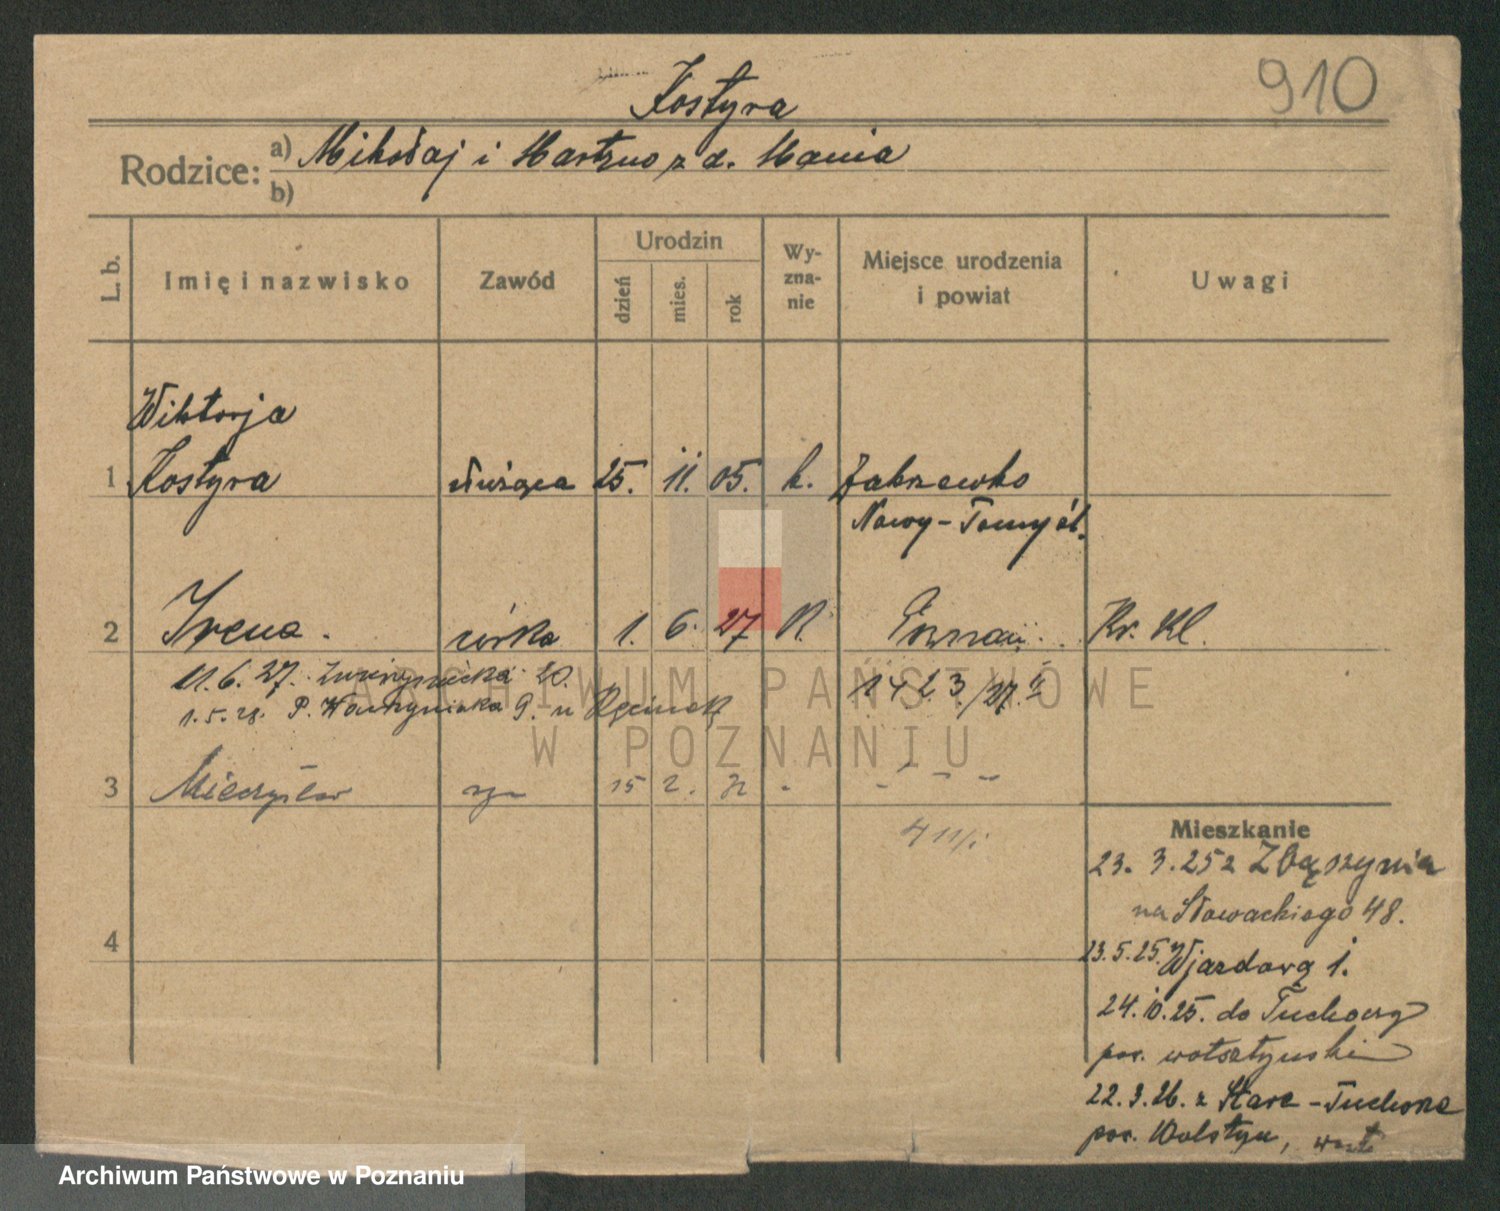 910
Kostyra
Rodzice: a) Mikołaj i z d. Mania
b)
L. b. Imię i nazwisko Zawód Urodzin dzień mies. rok Wy-zna-nie Miejsce urodzenia i powiat Uwagi
Wiktorja
1 Kostyra służąca 25. 11. 05. k. Zabrzewko
Nowy-Tomyśl.
2 Irena. córka 1. 6. 27 K. Poznań. Kr. Kl.
11.6.27. 20. 1423/27. II
1.5.28. P. Wawrzyniaka 9. u
3 Mieczysław 15 2. - - - -
Mieszkanie
23. 3. 25 z Zbąszynia
na Słowackiego 48.
4
23.5.25. Wjazdową 1.
24. 10. 25. do Tuchorzy
pow. wolsztyński
22. 3. 26. z Stare-Tuchorze
pow. Wolsztyn,
ARCHIWUM PAŃSTWOWE
W POZNANIU
Archiwum Państwowe w Poznaniu